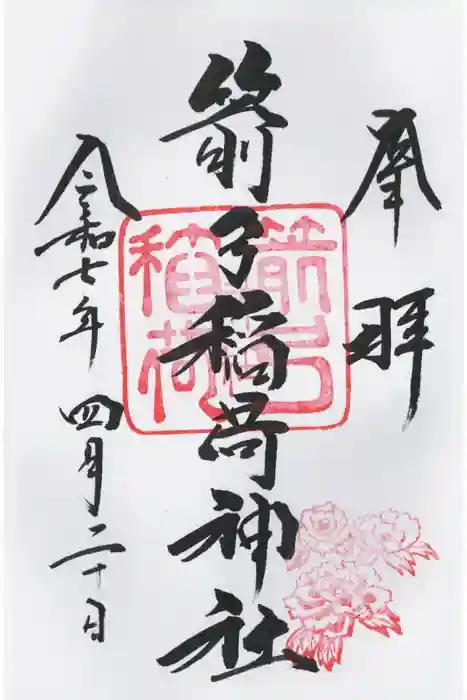 奉拝
箭弓稲荷神社
令和七年 四月二十日
箭弓
稲荷